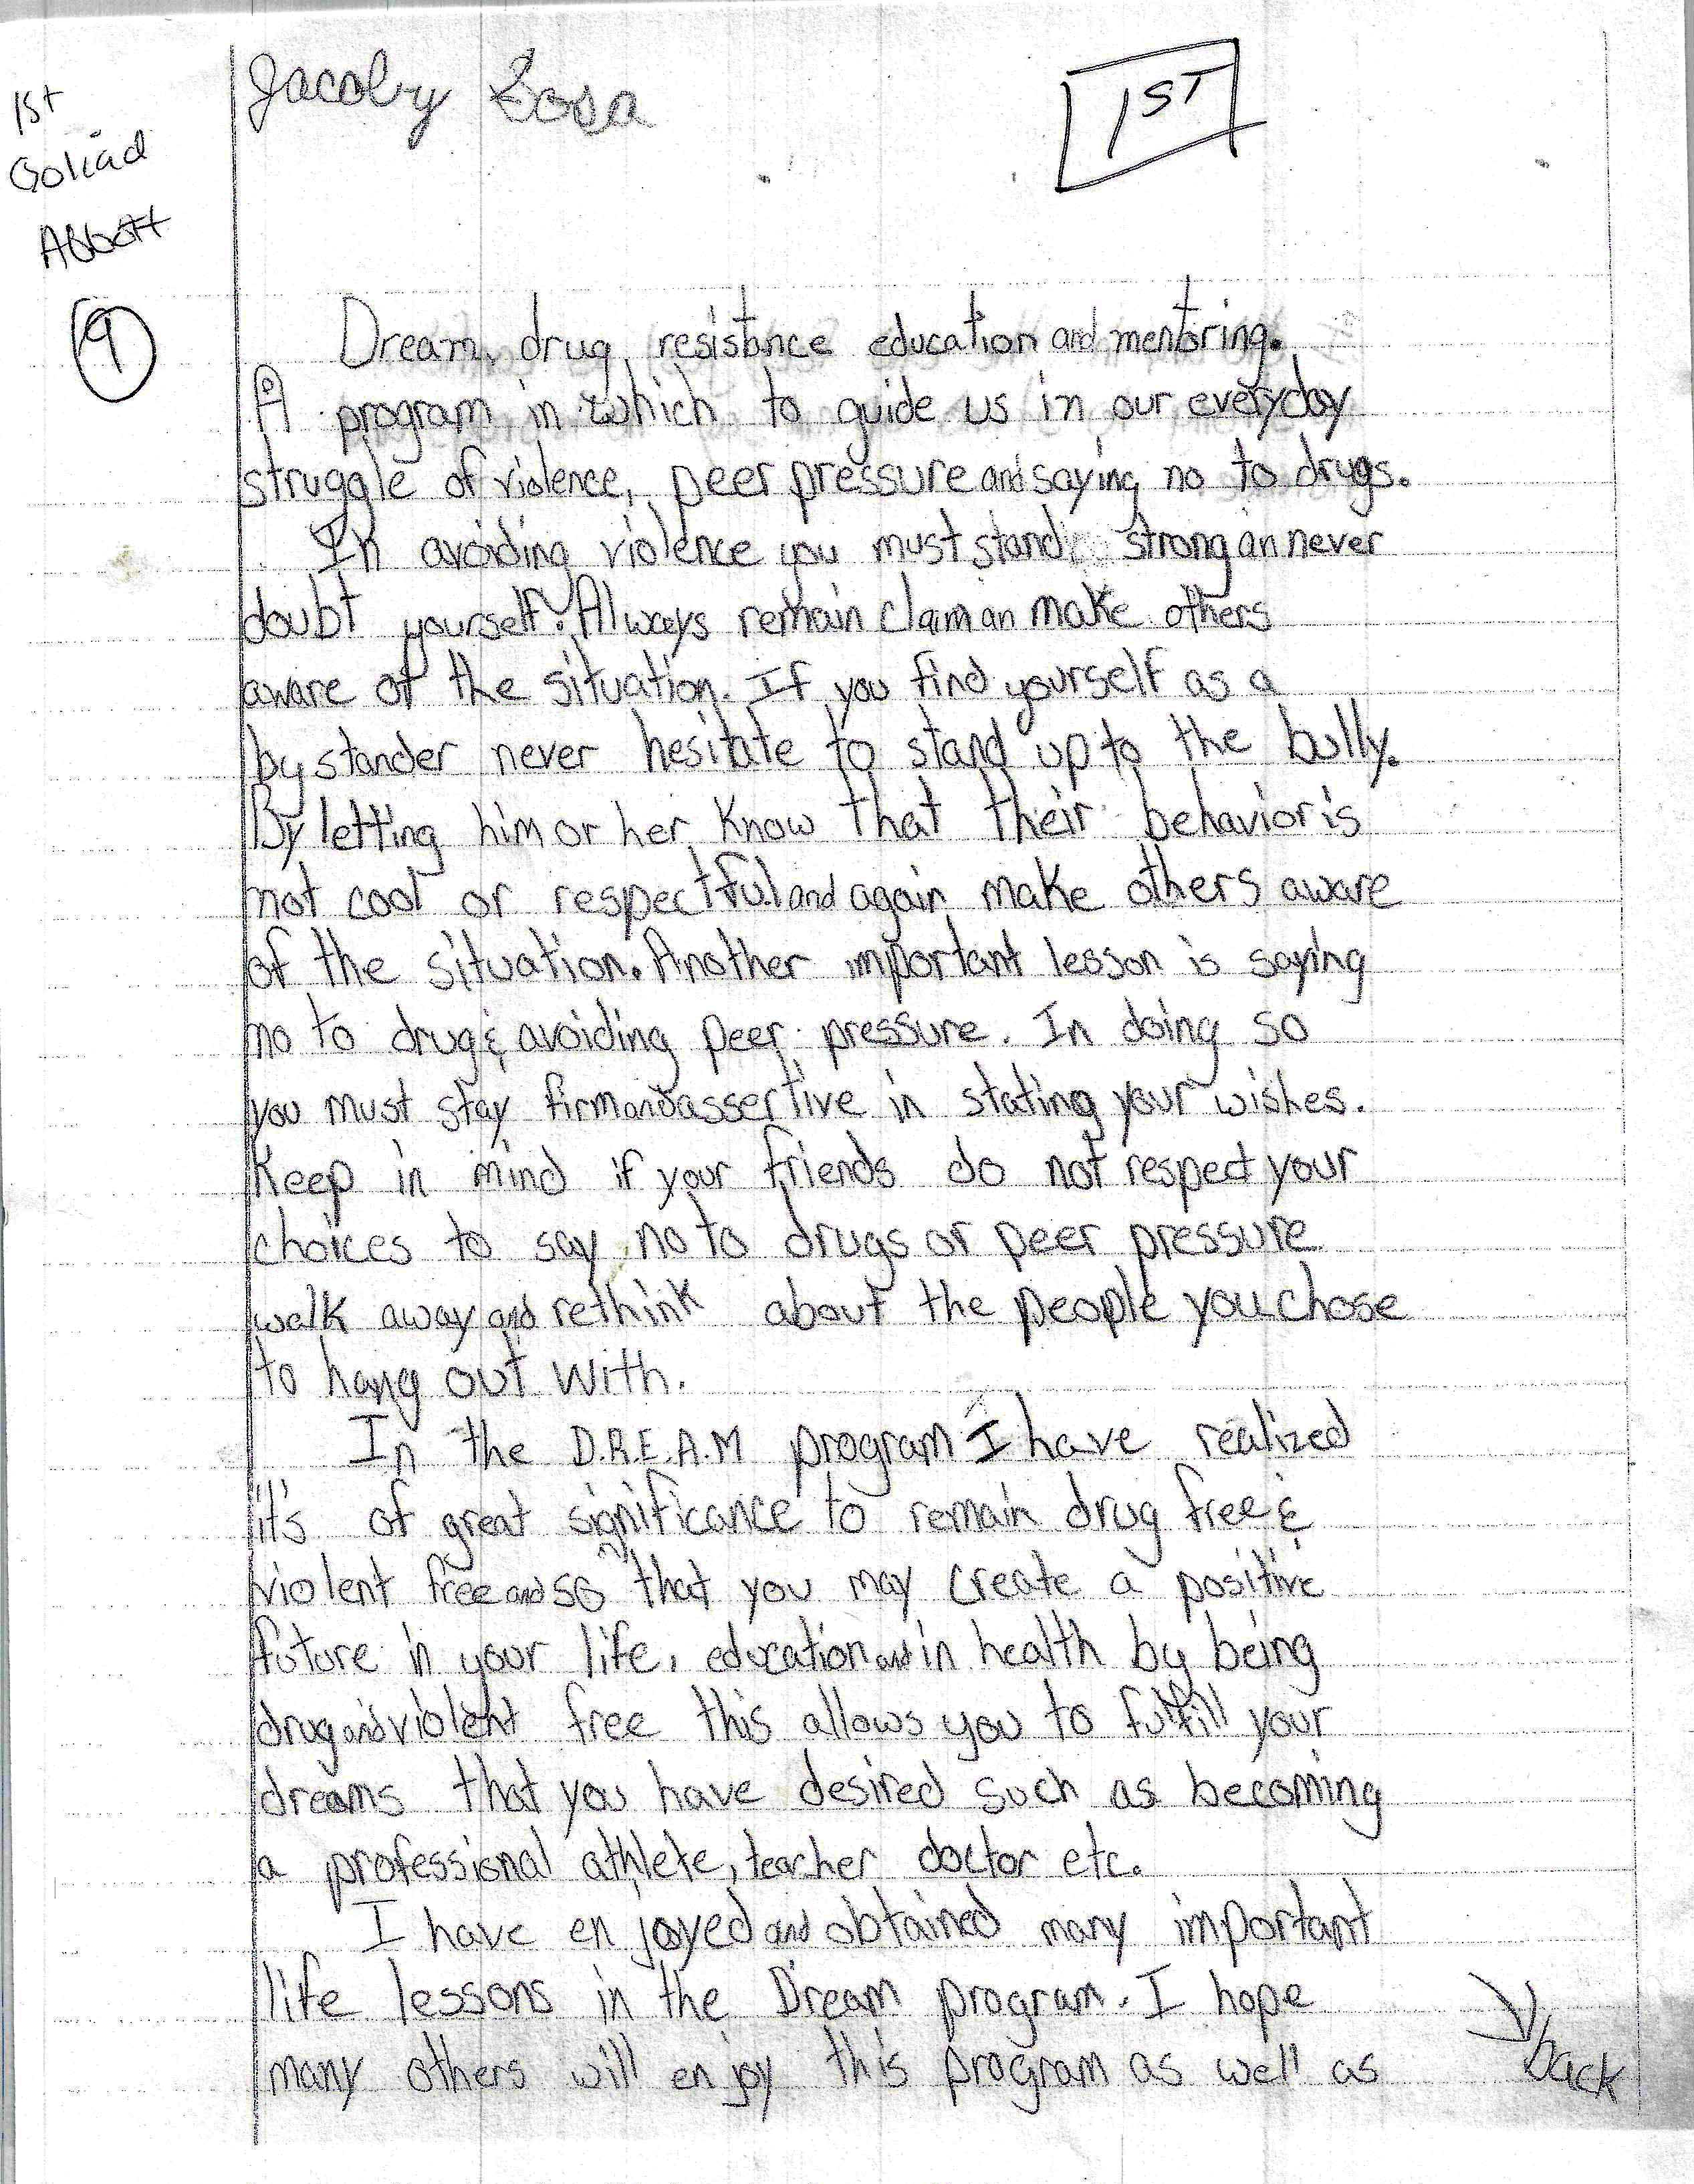 Jacoby Sosa
1ST
1st
Goliad
Abbott
9
Dream, drug, resistance education and mentoring.
A program in which to guide us in our everyday
struggle of violence, peer pressure and saying no to drugs.
In avoiding violence you must stand strong an never
doubt yourself. Always remain claim an make others
aware of the situation. If you find yourself as a
bystander never hesitate to stand up to the bully.
By letting him or her know that their behavior is
not cool or respectful and again make others aware
of the situation. Another important lesson is saying
no to drug & avoiding peer pressure. In doing so
you must stay firm and assertive in stating your wishes.
Keep in mind if your friends do not respect your
choices to say no to drugs or peer pressure
walk away and rethink about the people you chose
to hang out with.
In the D.R.E.A.M program I have realized
it's of great significance to remain drug free &
violent free and so that you may create a positive
future in your life, education and in health by being
drug and violent free this allows you to fulfill your
dreams that you have desired such as becoming
a professional athlete, teacher doctor etc.
I have enjoyed and obtained many important
life lessons in the Dream program. I hope
many others will enjoy this program as well as
back